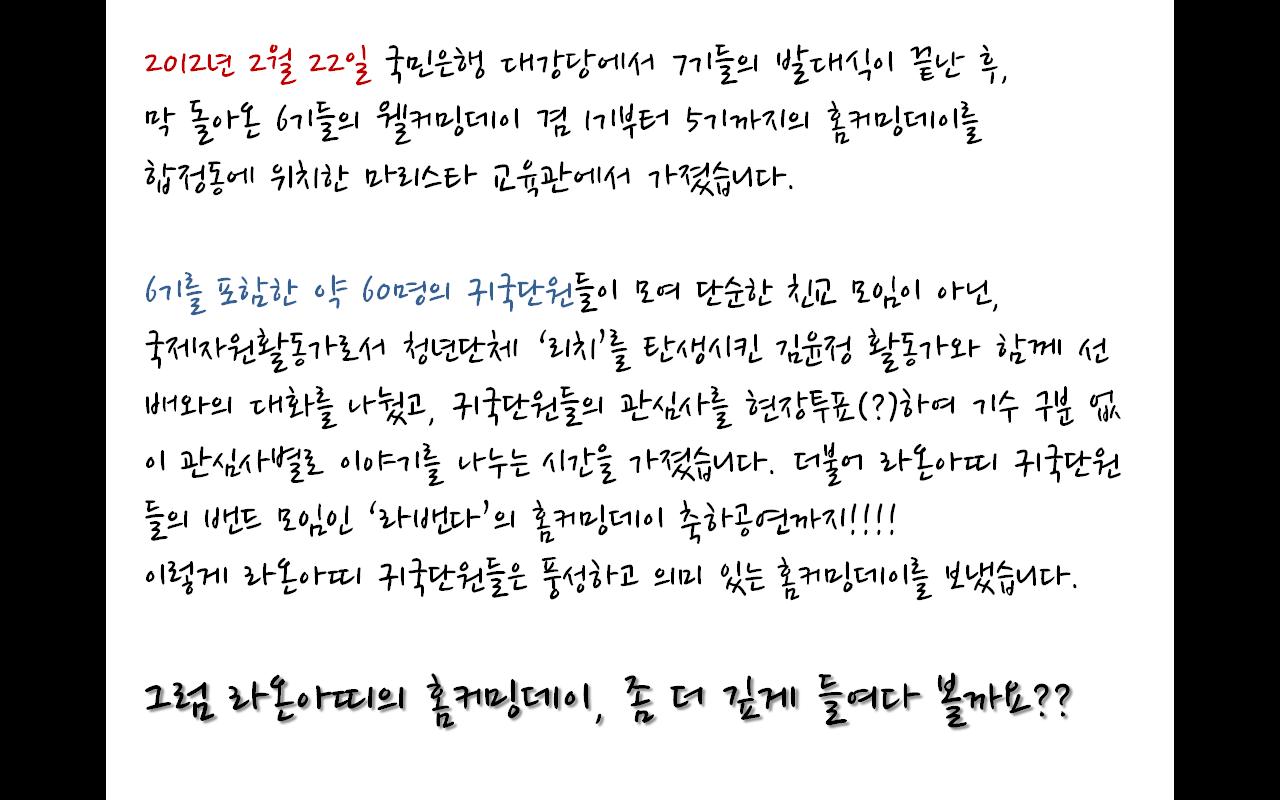 2012년 2월 22일 국민은행 대강당에서 7기들의 발대식이 끝난 후,
막 돌아온 6기들의 웰커밍데이 겸 1기부터 5기까지의 홈커밍데이를
합정동에 위치한 마리스타 교육관에서 가졌습니다.
6기를 포함한 약 60명의 귀국단원들이 모여 단순한 친교 모임이 아닌,
국제자원활동가로서 청년단체 ‘리치’를 탄생시킨 김윤정 활동가와 함께 선
배와의 대화를 나눴고, 귀국단원들의 관심사를 현장투표(?)하여 기수 구분 없
이 관심사별로 이야기를 나누는 시간을 가졌습니다. 더불어 라온아띠 귀국단원
들의 밴드 모임인 ‘라밴다’의 홈커밍데이 축하공연까지!!!!
이렇게 라온아띠 귀국단원들은 풍성하고 의미 있는 홈커밍데이를 보냈습니다.
그럼 라온아띠의 홈커밍데이, 좀 더 깊게 들여다 볼까요??